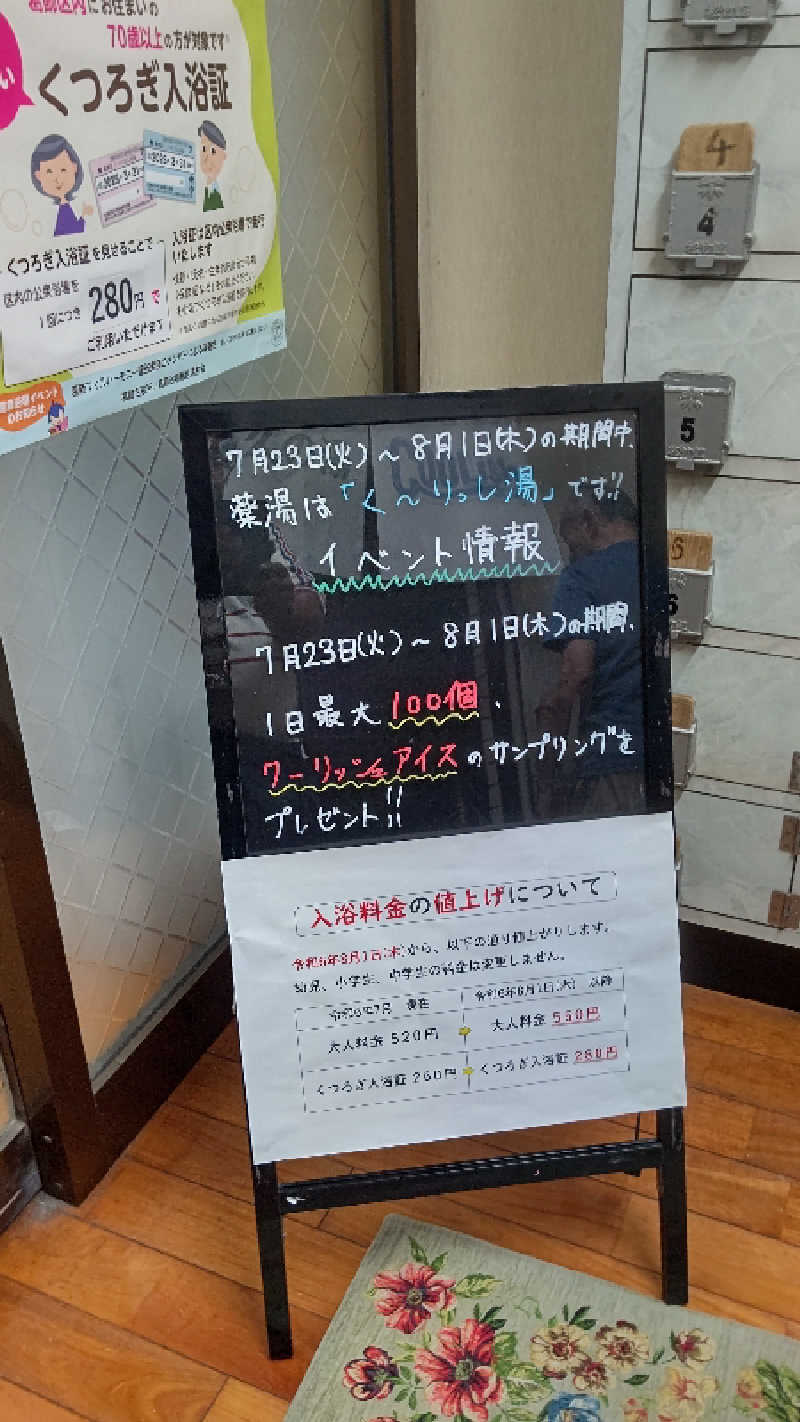 葛飾区内にお住まいの
70歳以上の方が対象です
い
くつろぎ入浴証
くつろぎ入浴証を見せることで
区内の公衆浴場を
1回につき 280円で
ご利用いただけます
入浴証は区内公衆浴場で発行
いたします
のお知らせ
4
4
5
6
6
7月23日(火)〜8月1日(木)の期間中、
薬湯は「く〜りっしュ湯」です!!
イベント情報
7月23日(火)〜8月1日(木)の期間、
1日最大100個、
クーリッシュアイスのサンプリングを
プレゼント!!
入浴料金の値上げについて
令和6年8月1日(木)から、以下の通り値上がりします。
幼児、小学生、中学生の料金は変更しません。
令和6年7月 現在
令和6年8月1日(木) 以降
大人料金 520円
大人料金 550円
くつろぎ入浴証 260円
くつろぎ入浴証 280円